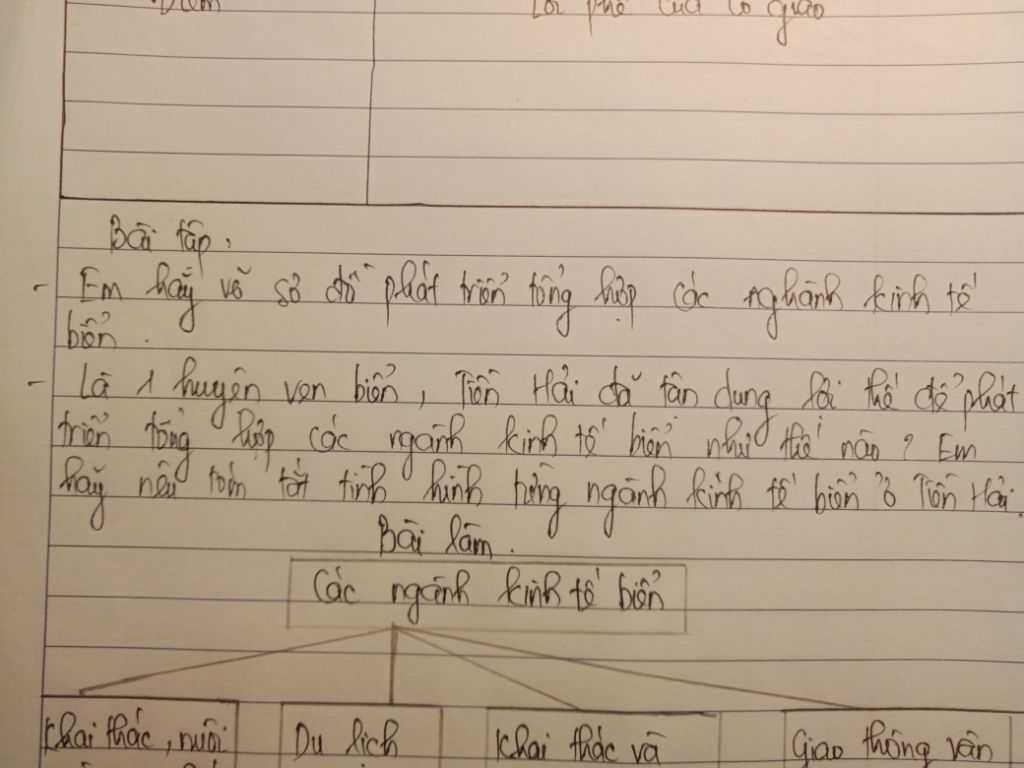 Điểm Lời phê của cô giáo
Bài tập:
- Em hãy vẽ sơ đồ phát triển tổng hợp các nghành kinh tế
biển.
- Là 1 huyện ven biển, Tiền Hải đã tận dụng lợi thế để phát
triển tổng hợp các ngành kinh tế biển như thế nào? Em
hãy nêu tóm tắt tình hình từng ngành kinh tế biển ở Tiền Hải.
Bài làm.
Các ngành kinh tế biển
Khai thác, nuôi Du lịch Khai thác và Giao thông vận